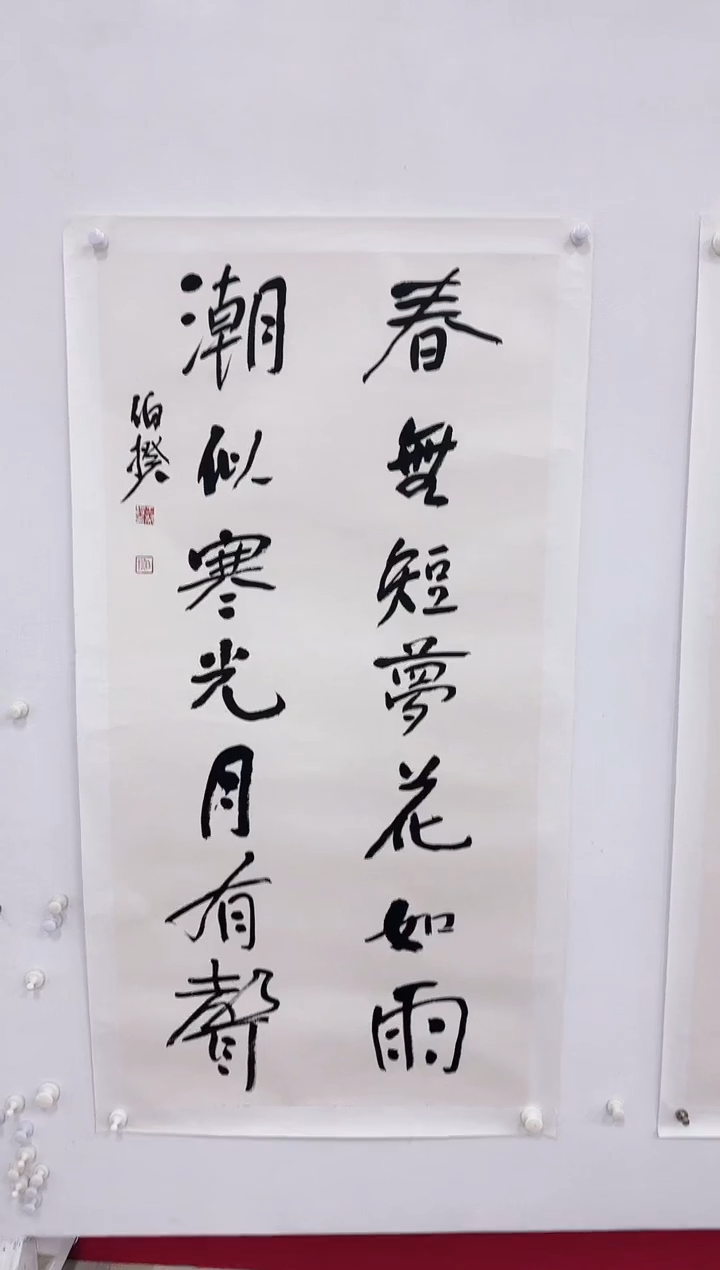 春無短夢花如雨
潮似寒光月有聲
伯揆